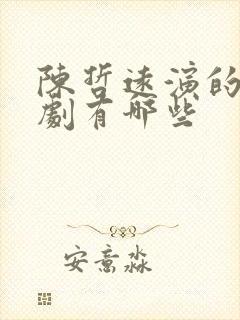 陳哲遠演的
劇有哪些
安意淼